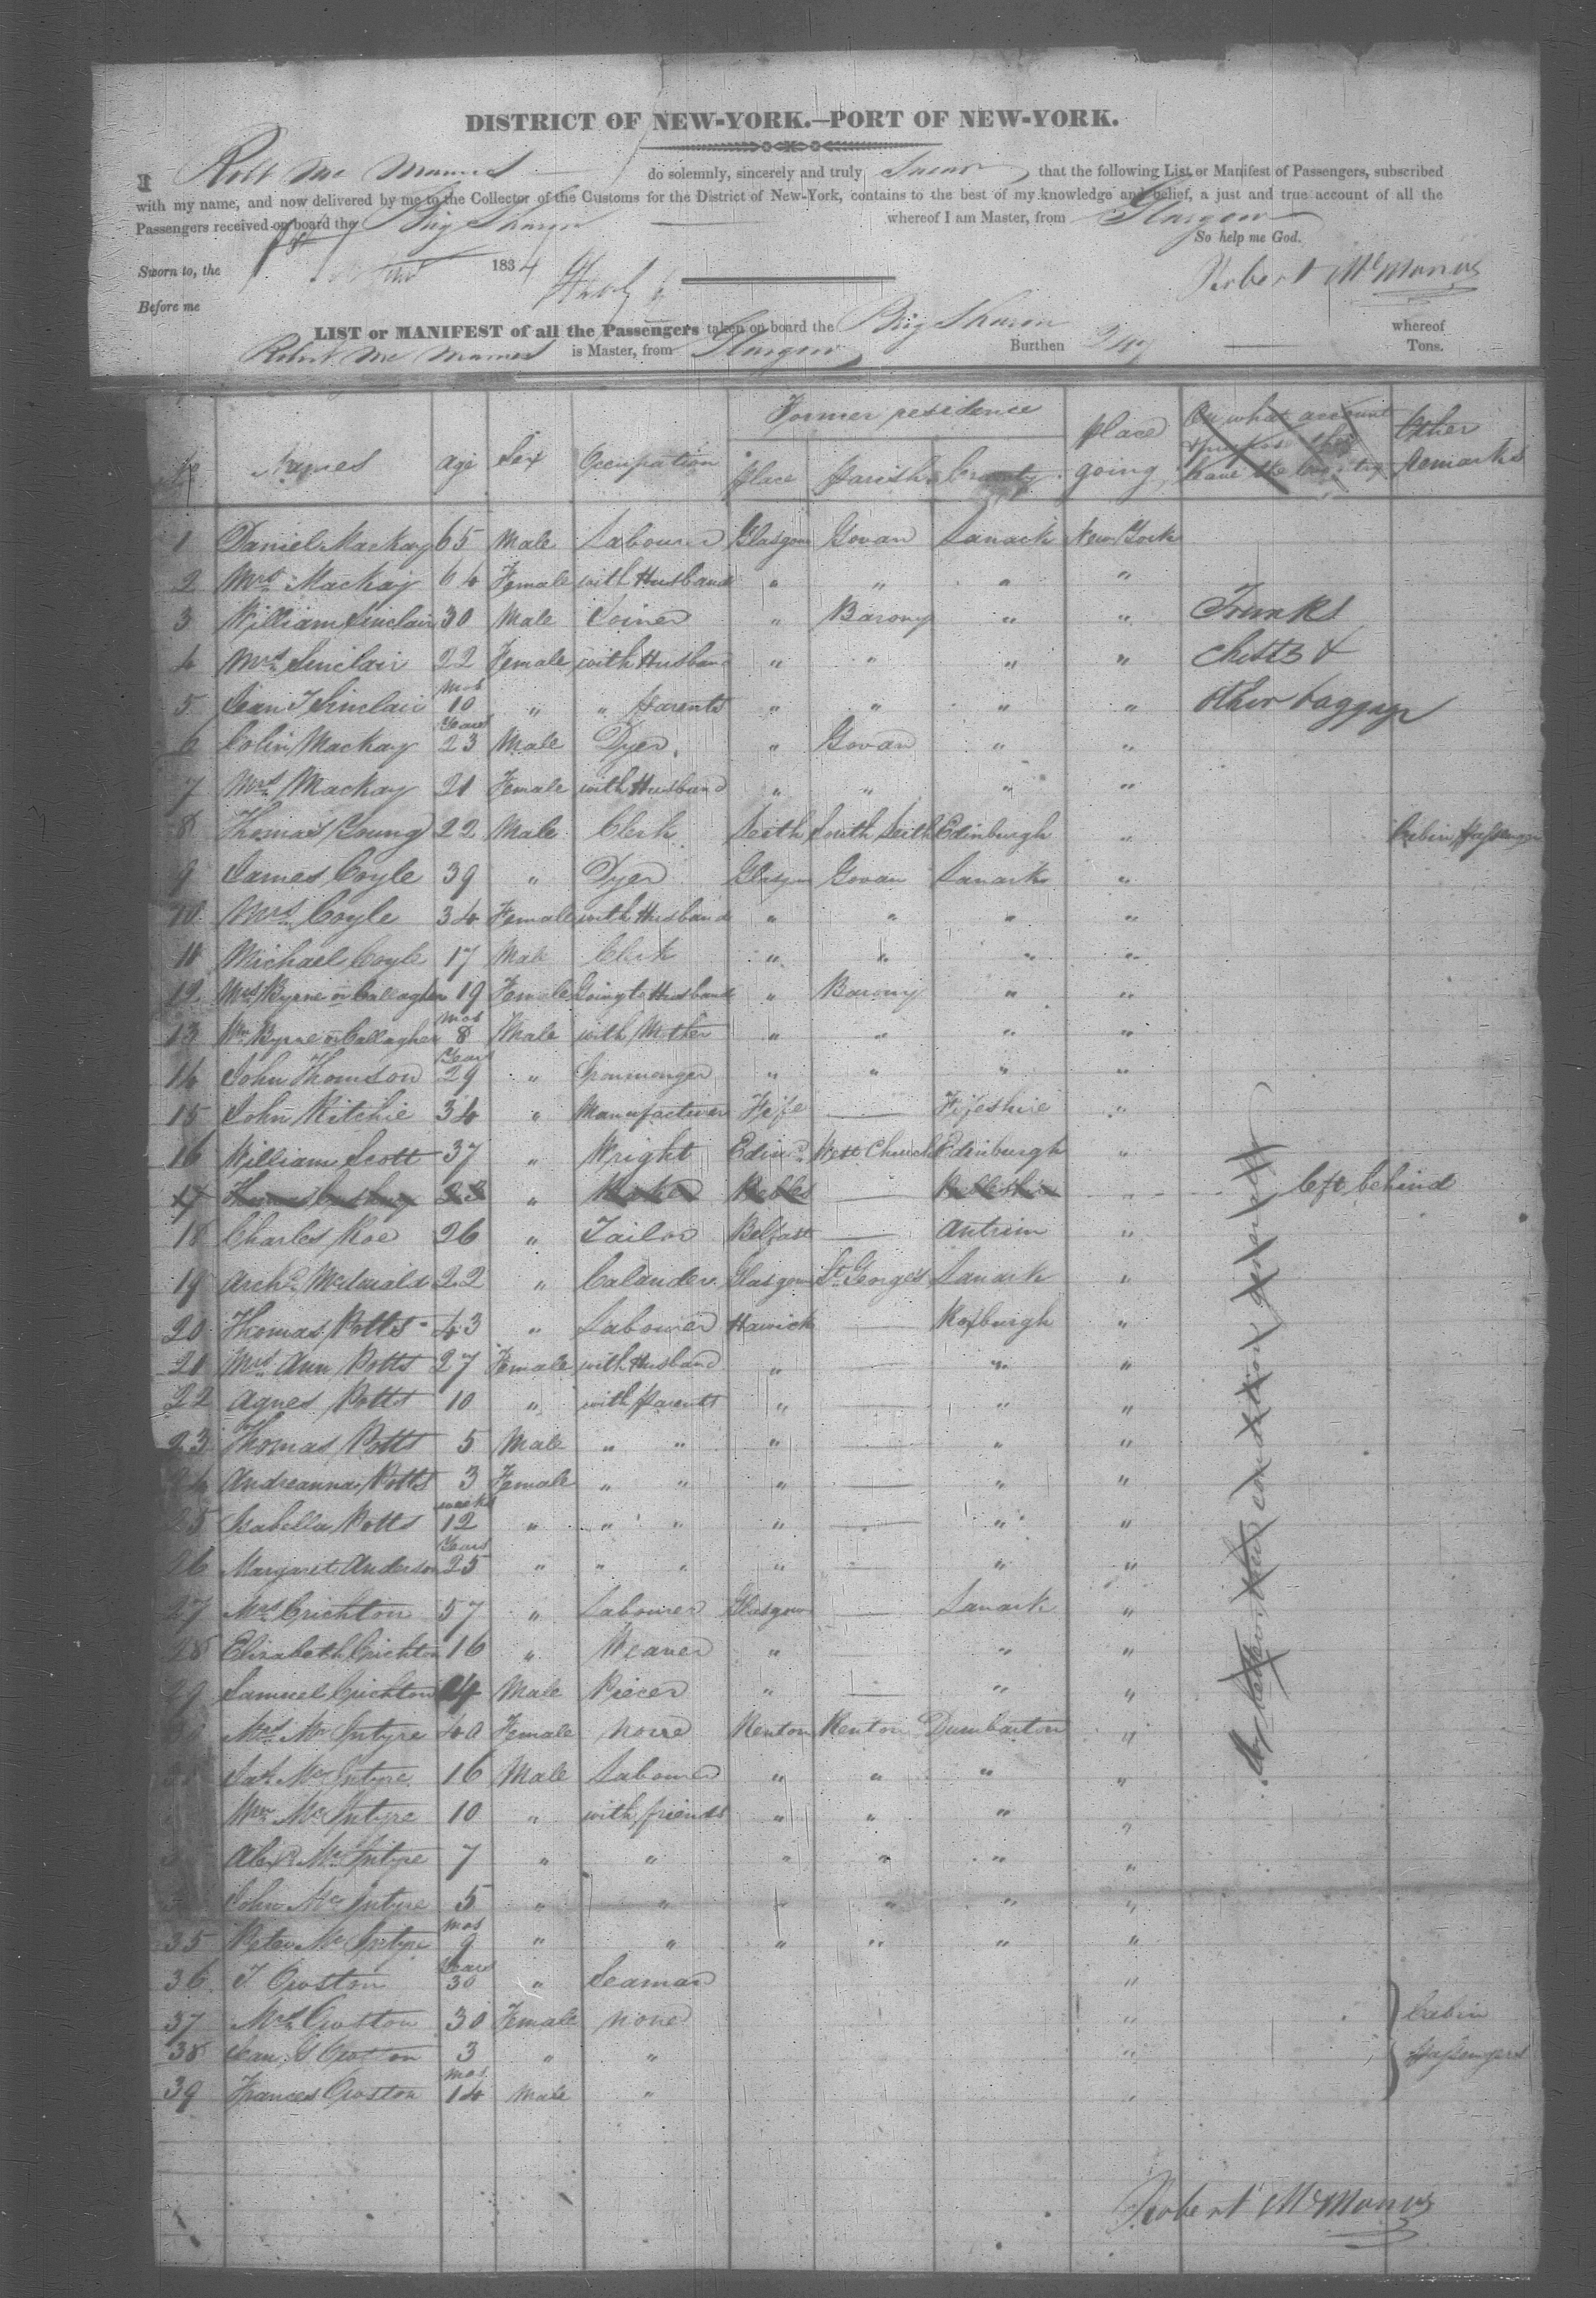 DISTRICT OF NEW-YORK.—PORT OF NEW-YORK.
I Robt Mc Manus do solemnly, sincerely and truly Swear that the following List or Manifest of Passengers, subscribed
with my name, and now delivered by me to the Collector of the Customs for the District of New-York, contains to the best of my knowledge and belief, a just and true account of all the
Passengers received on board the Brig Sharon whereof I am Master, from Glasgow
So help me God.
Sworn to, the 1834
Robert McManus
Before me
LIST or MANIFEST of all the Passengers taken on board the Brig Sharon whereof
Robert Mc Manus is Master, from Glasgow Burthen 247 Tons.
No Names age Sex Occupation Former residence place Parish County place going On what account & purpose they have the Other Remarks
1 Daniel Mackay 65 Male Labourer Glasgow Govan Lanark New York
2 Mrs Mackay 64 Female with Husband " " " "
3 William Sinclair 30 Male Joiner " Barony " " Trunks
4 Mrs Sinclair 22 Female with Husband " " " " Chests &
5 Jean T Sinclair mos 10 " " parents " " " " other baggage
6 Colin Mackay Years 23 Male Dyer " Govan " "
7 Mrs Mackay 21 Female with Husband " " " "
8 Thomas Young 22 Male Clerk Leith South Leith Edinburgh " Cabin Passenger
9 James Coyle 39 " Dyer Glasgow Govan Lanark "
10 Mrs Coyle 34 Female with Husband " " " "
11 Michael Coyle 17 Male Clerk " " " "
12 Mrs Byrne or Callagher 19 Female Going to Husband " Barony " "
13 Wm Byrne or Callagher mos 8 Male with Mother " " " "
14 John Thomson Years 29 " Ironmonger " " " "
15 John Ritchie 34 " Manufacturer Fife — Fifeshire "
16 William Scott 37 " Wright Edinr West Church Edinburgh "
17 23 " Baker Peebles — Peeblesshire " left behind
18 Charles Roe 26 " Tailor Belfast — Antrim "
19 Archd McDonald 22 " Calander Glasgow St George's Lanark "
20 Thomas Potts 43 " Labourer Hawick — Roxburgh "
21 Mrs Ann Potts 27 Female with Husband " — " "
22 Agnes Potts 10 " with parents " — " "
23 Thomas Potts 5 Male " " " — " "
24 Andreanna Potts 3 Female " " " — " "
25 Isabella Potts weeks 12 " " " " — " "
26 Margaret Anderson Years 25 " " " " — " "
27 Mrs Crichton 57 " Labourer Glasgow — Lanark "
28 Elizabeth Crichton 16 " Weaver " — " "
29 Samuel Crichton 14 Male Piecer " — " "
30 Mrs Mc Intyre 40 Female none Renton Renton Dumbarton "
Jas Mc Intyre 16 Male Labourer " " " "
Wm Mc Intyre 10 " with friends " " " "
Alexr Mc Intyre 7 " " " " " "
John Mc Intyre 5 " " " " " "
35 Peter Mc Intyre mos 9 " " " " " "
36 T Croston Years 30 " Seaman "
37 Mrs Croston 30 Female none " Cabin
38 Jean G Croston 3 " " " Passengers
39 Frances Croston mos 14 Male " "
to better their condition generally
Robert McManus